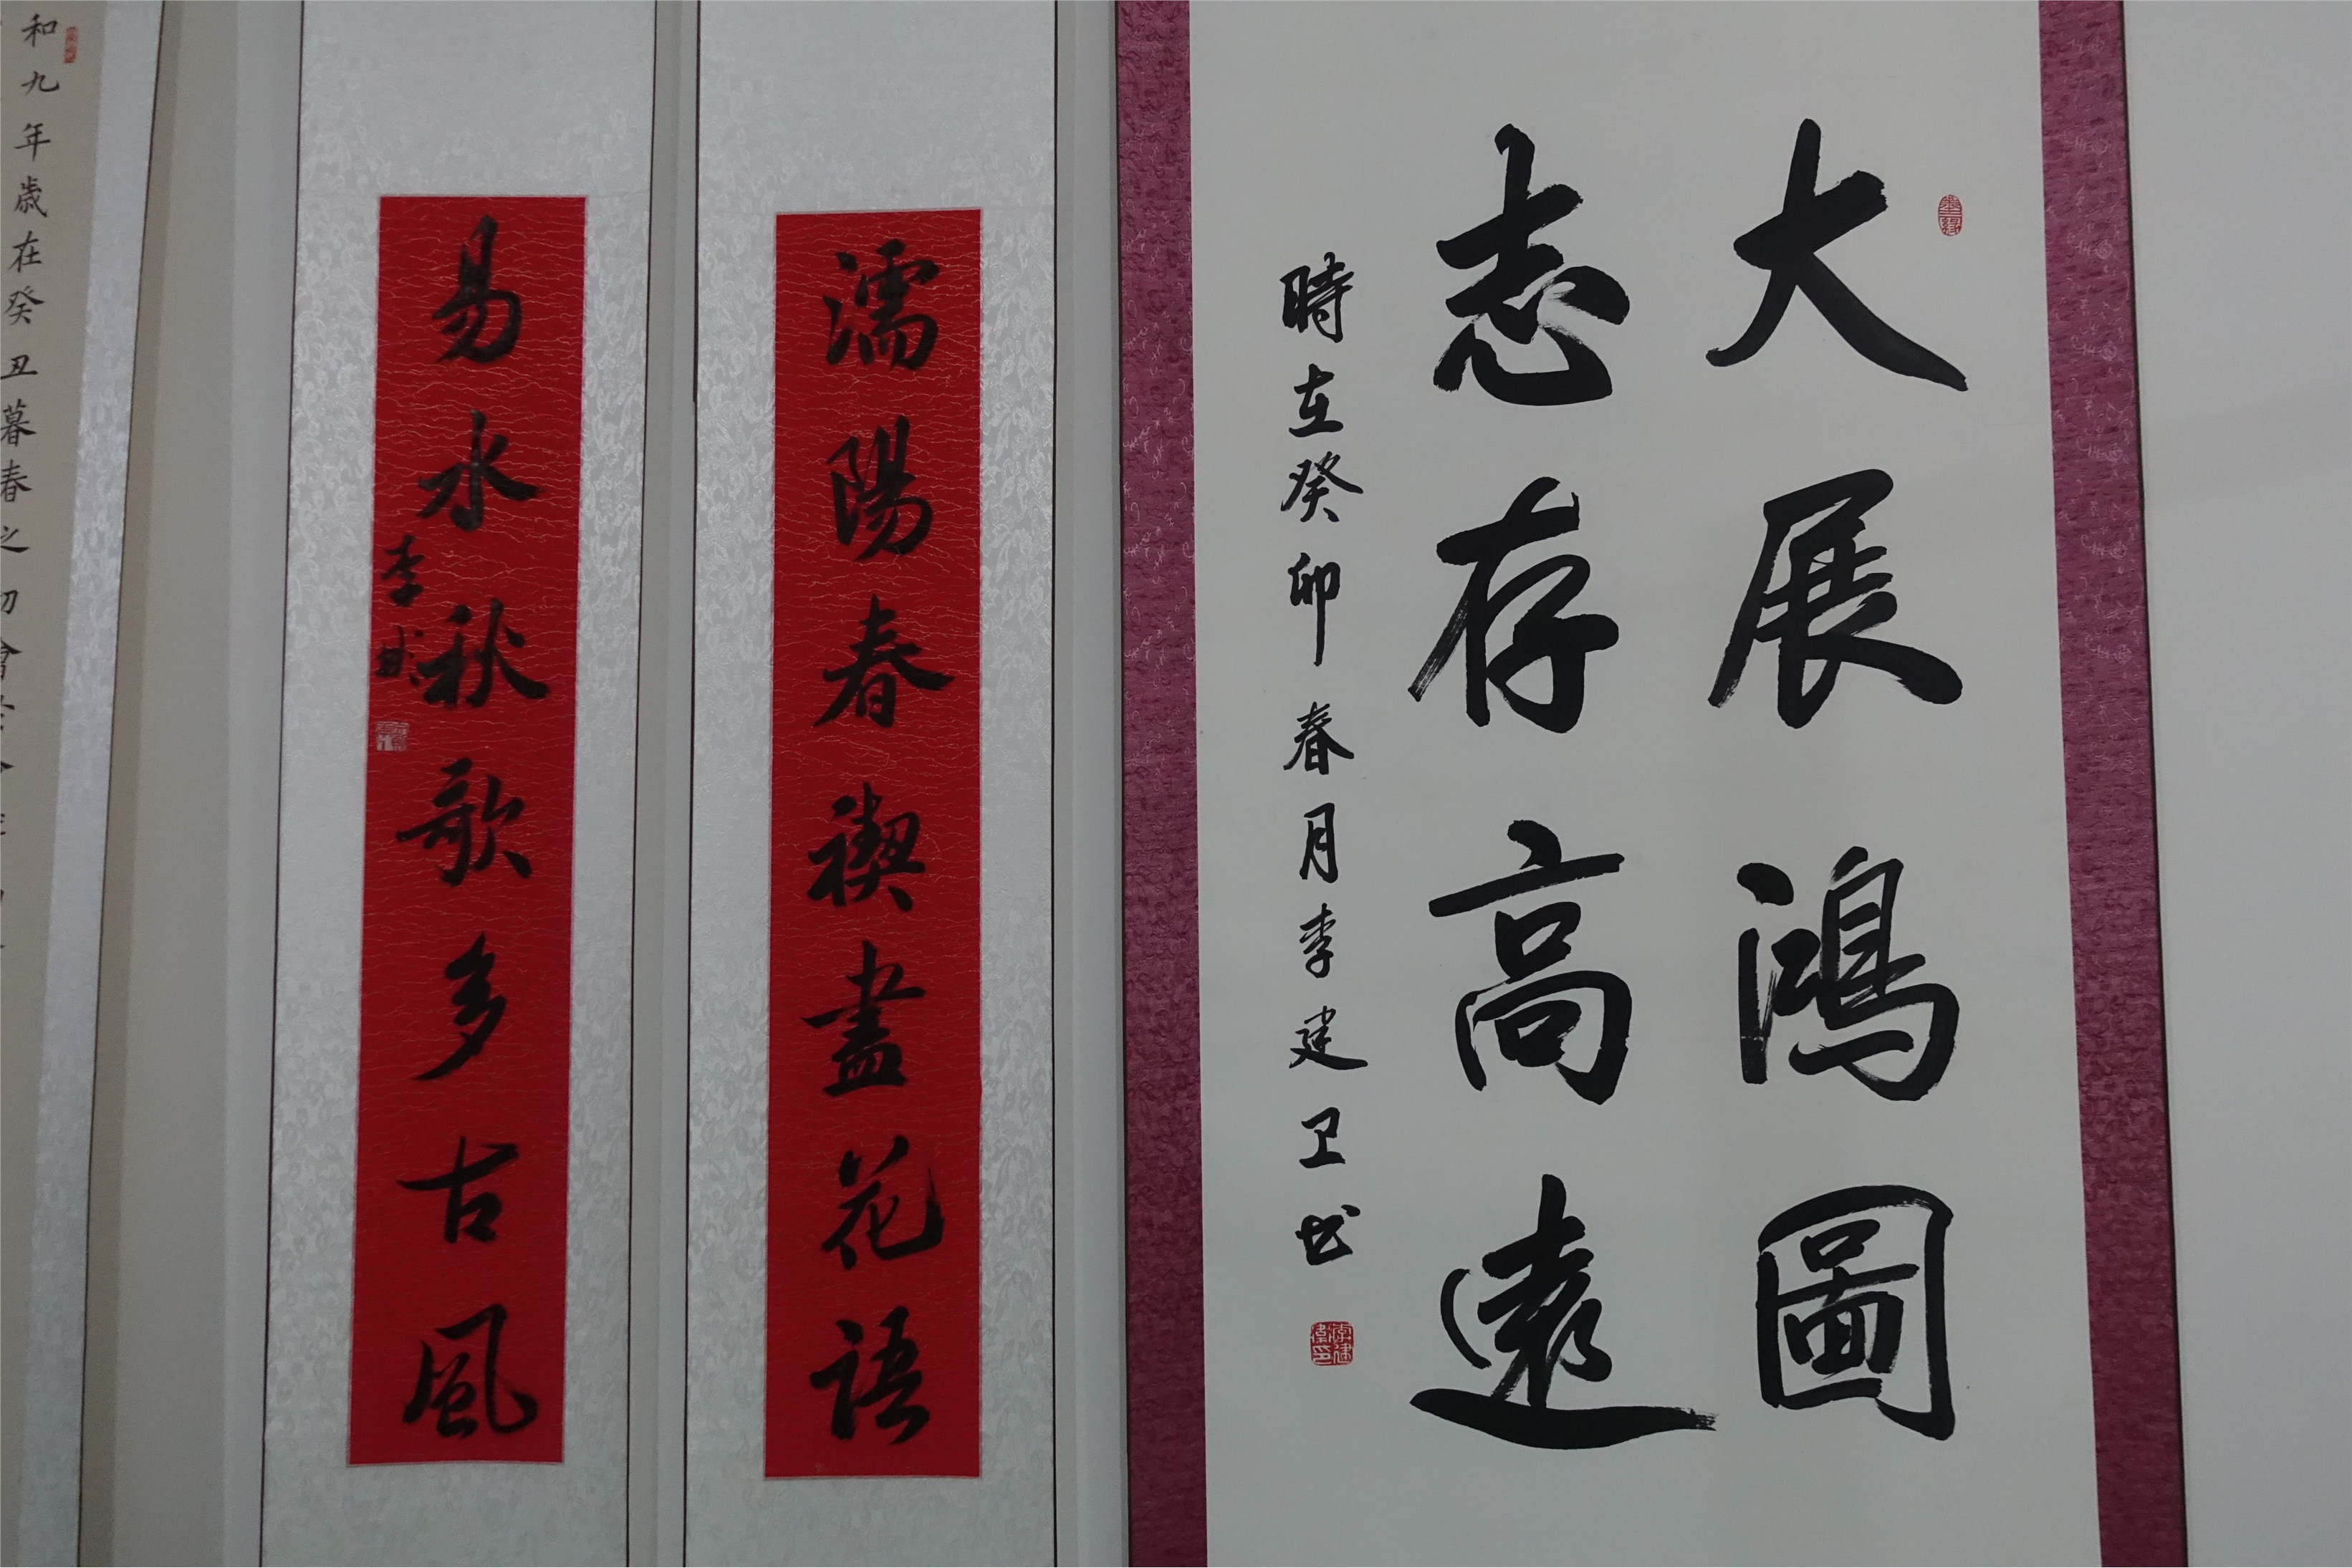 大展鴻圖
志存高遠
時在癸卯春月李建卫书
濡陽春禊盡花語
易水秋歌多古風
和九年歲在癸丑暮春之初會